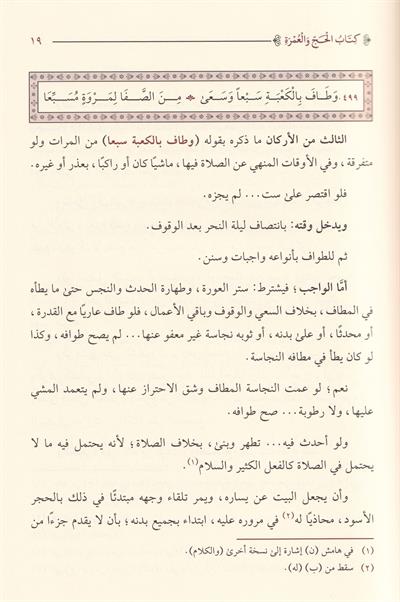 كِتَابُ الْحَجّ وَالْعُمْرَةِ
١٩
٤٩٩. وَطَافَ بِالْكَعْبَةِ سَبْعاً وَسَعَىٰ مِنَ الصَّفَا لِمَرْوَةٍ مُسَبِّعَا
الثالث من الأركان ما ذكره بقوله (وطاف بالكعبة سبعا) من المرات ولو
متفرقة، وفي الأوقات المنهي عن الصلاة فيها، ماشيًا كان أو راكبًا، بعذر أو غيره.
فلو اقتصر علىٰ ست... لم يجزه.
ويدخل وقته: بانتصاف ليلة النحر بعد الوقوف.
ثم للطواف بأنواعه واجبات وسنن.
أمَّا الواجب؛ فيشترط: ستر العورة، وطهارة الحدث والنجس حتىٰ ما يطأه
في المطاف، بخلاف السعي والوقوف وباقي الأعمال، فلو طاف عاريًا مع القدرة،
أو محدثًا، أو علىٰ بدنه، أو ثوبه نجاسة غير معفو عنها... لم يصح طوافه، وكذا
لو كان يطأ في مطافه النجاسة.
نعم؛ لو عمت النجاسة المطاف وشق الاحتراز عنها، ولم يتعمد المشي
عليها، ولا رطوبة... صح طوافه.
ولو أحدث فيه... تطهر وبنىٰ، بخلاف الصلاة؛ لأنه يحتمل فيه ما لا
يحتمل في الصلاة كالفعل الكثير والسلام(١).
وأن يجعل البيت عن يساره، ويمر تلقاء وجهه مبتدئًا في ذلك بالحجر
الأسود، محاذيًا له(٢) في مروره عليه، ابتداء بجميع بدنه؛ بأن لا يقدم جزءًا من
(١) في هامش (ن) إشارة إلىٰ نسخة أخرىٰ (والكلام).
(٢) سقط من (ب) (له).